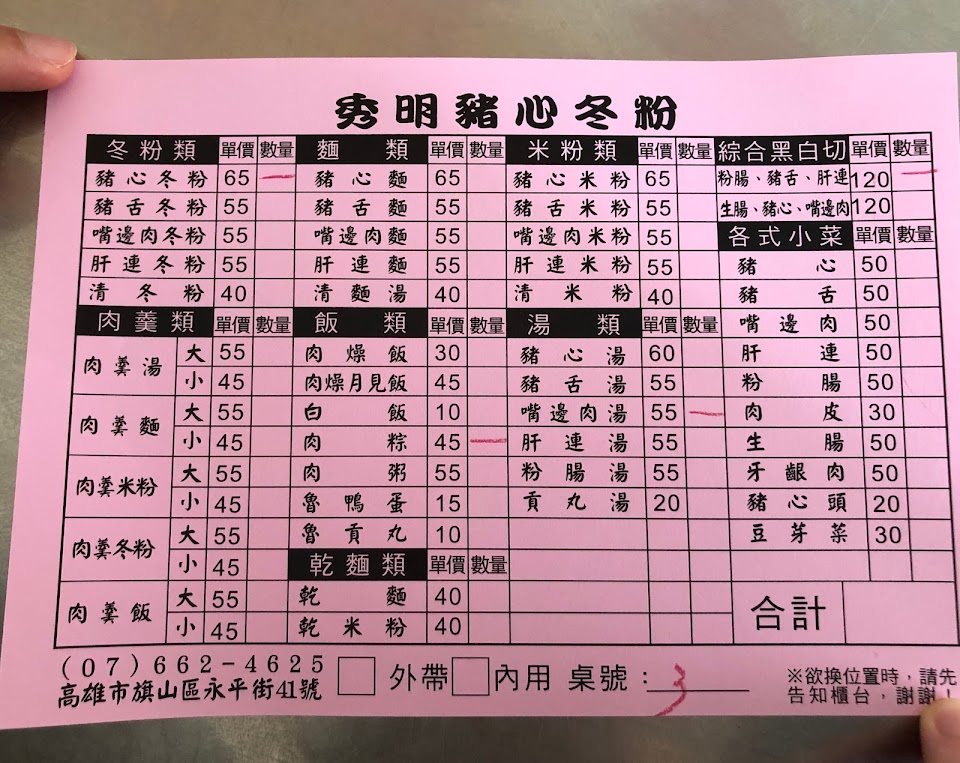 秀明豬心冬粉
冬粉類 單價 數量 麵類 單價 數量 米粉類 單價 數量 綜合黑白切 單價 數量
豬心冬粉 65 一 豬心麵 65 豬心米粉 65 粉腸、豬舌、肝連 120 一
豬舌冬粉 55 豬舌麵 55 豬舌米粉 55 生腸、豬心、嘴邊肉 120
嘴邊肉冬粉 55 嘴邊肉麵 55 嘴邊肉米粉 55 各式小菜 單價 數量
肝連冬粉 55 肝連麵 55 肝連米粉 55 豬心 50
清冬粉 40 清麵湯 40 清米粉 40 豬舌 50
肉羹類 單價 數量 飯類 單價 數量 湯類 單價 數量 嘴邊肉 50
肉羹湯 大 55 肉燥飯 30 豬心湯 60 肝連 50
小 45 肉燥月見飯 45 豬舌湯 55 粉腸 50
肉羹麵 大 55 白飯 10 嘴邊肉湯 55 一 肉皮 30
小 45 肉粽 45 一 肝連湯 55 生腸 50
肉羹米粉 大 55 肉粥 55 粉腸湯 55 牙齦肉 50
小 45 魯鴨蛋 15 貢丸湯 20 豬心頭 20
肉羹冬粉 大 55 魯貢丸 10 豆芽菜 30
小 45 乾麵類 單價 數量
肉羹飯 大 55 乾麵 40 合計
小 45 乾米粉 40
(07)662-4625 外帶 內用 桌號：3 ※欲換位置時，請先
高雄市旗山區永平街41號 告知櫃台，謝謝！